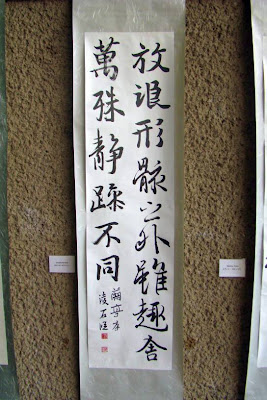 放浪形骸之外雖趣舍
萬殊静躁不同
蘭亭序